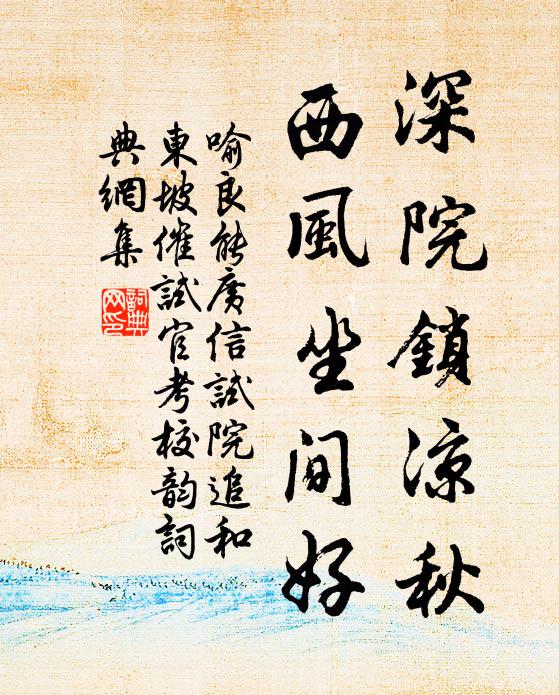 深院鎖涼秋
西風坐間好
喻良能廣信試院追和
東坡催試官考校韵詞
典網集
詞典
网印